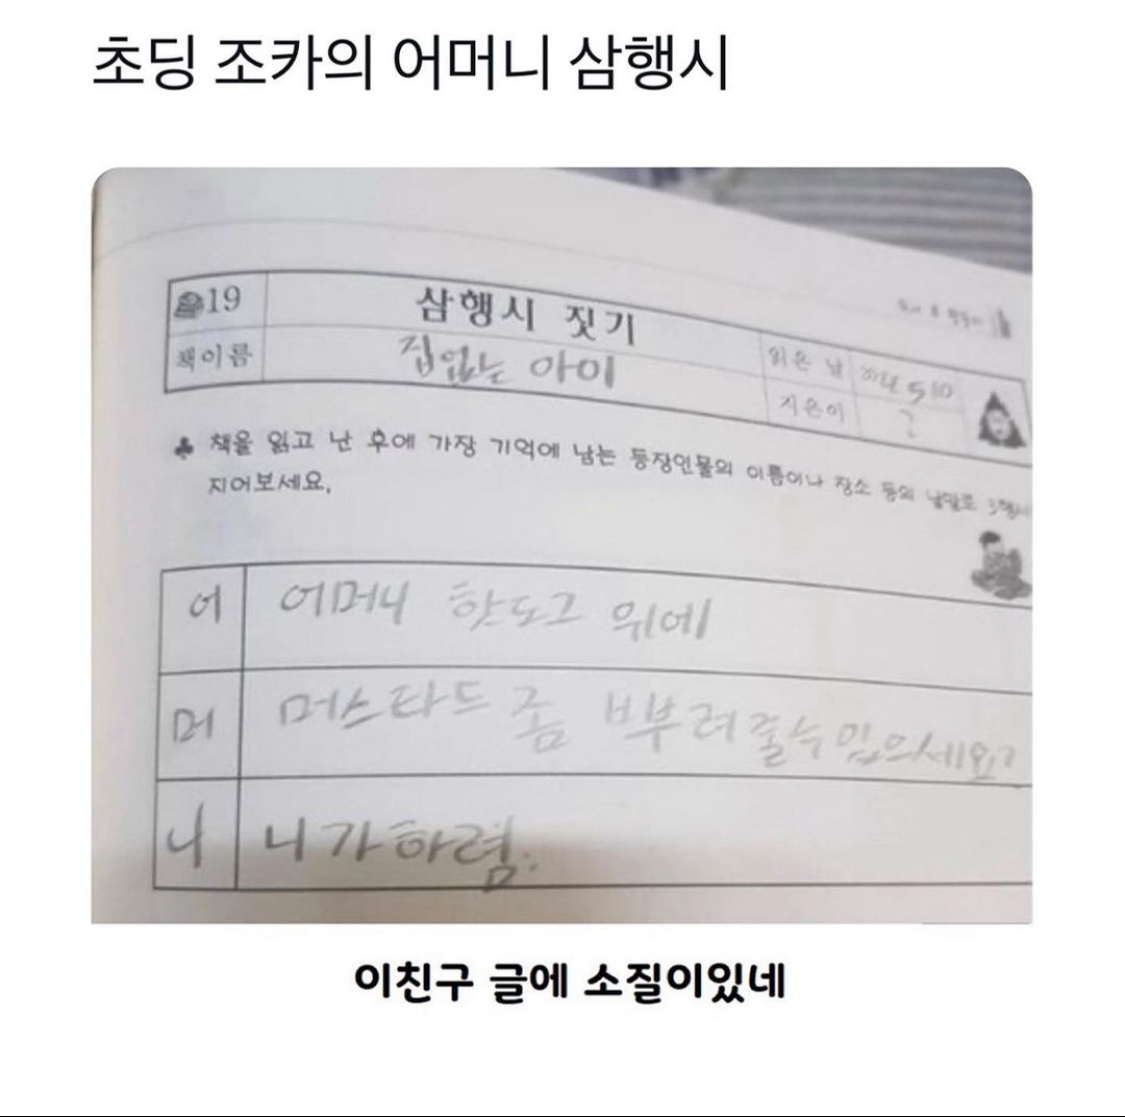 초딩 조카의 어머니 삼행시
19
삼행시 짓기
책이름
집없는 아이
읽은 날
5 10
지은이
?
♣ 책을 읽고 난 후에 가장 기억에 남는 등장인물의 이름이나 장소 등의 낱말로 3행시
지어보세요.
어 어머니 핫도그 위에
머 머스타드 좀 ㅂ부려줄수 있으세요?
니 니가하렴.
이친구 글에 소질이있네